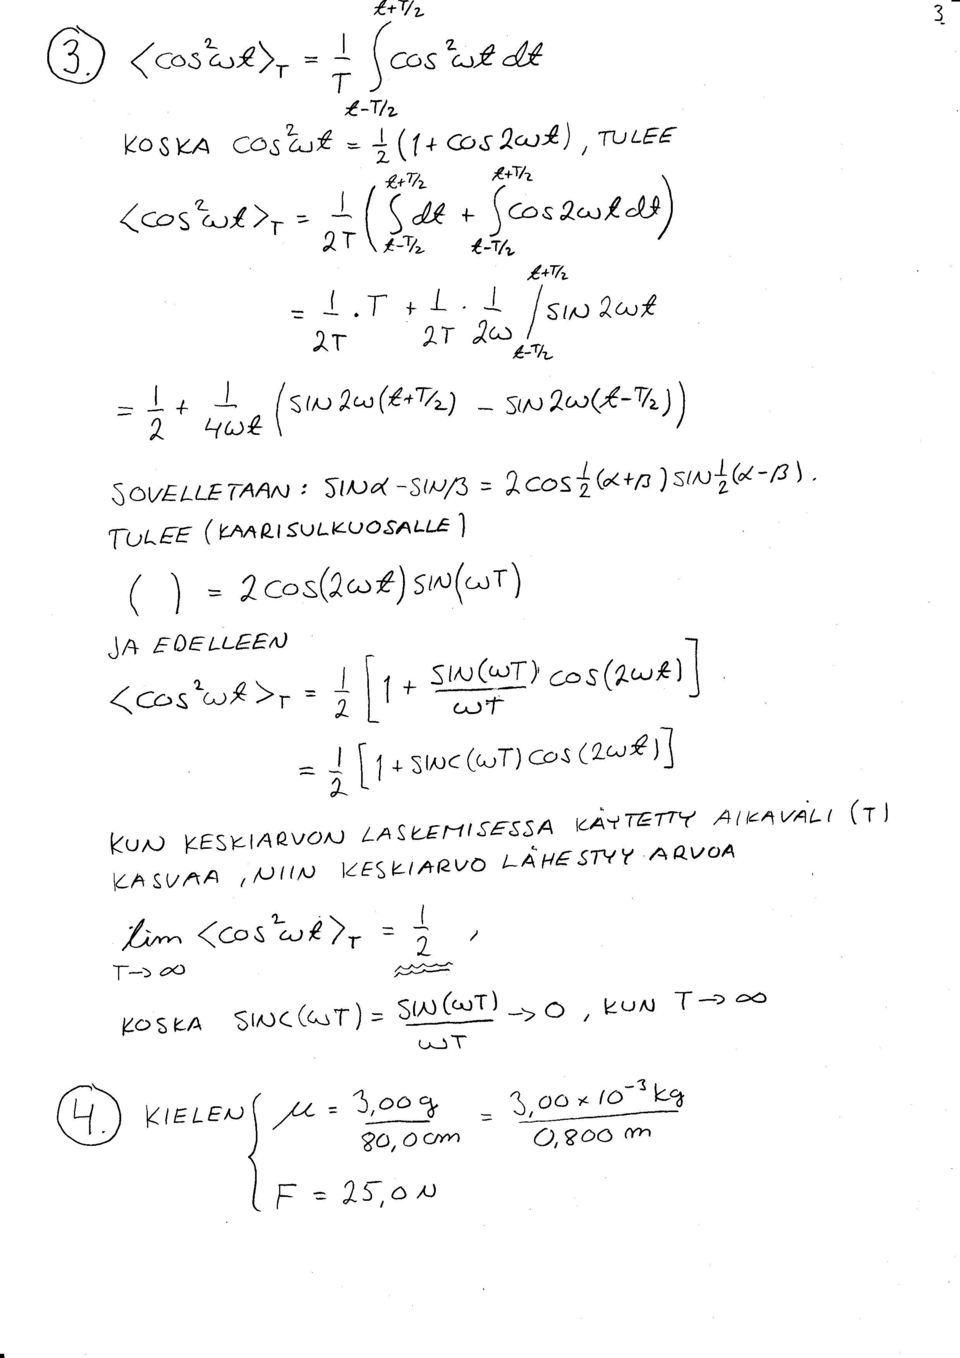 3.
3. <cos²ωt>_T = 1/T ∫_{t-T/2}^{t+T/2} cos²ωt dt
KOSKA cos²ωt = 1/2 (1 + cos 2ωt), TULEE
<cos²ωt>_T = 1/2T ( ∫_{t-T/2}^{t+T/2} dt + ∫_{t-T/2}^{t+T/2} cos 2ωt dt )
= 1/2T · T + 1/2T · 1/2ω /_{t-T/2}^{t+T/2} SIN 2ωt
= 1/2 + 1/4ωt ( SIN 2ω(t+T/2) - SIN 2ω(t-T/2) )
SOVELLETAAN: SINα - SINβ = 2 cos 1/2(α+β) SIN 1/2(α-β).
TULEE (KAARISULKUOSALLE)
( ) = 2 cos(2ωt) SIN(ωT)
JA EDELLEEN
<cos²ωt>_T = 1/2 [1 + SIN(ωT)/ωT cos(2ωt)]
= 1/2 [1 + SINC(ωT) cos(2ωt)]
KUN KESKIARVON LASKEMISESSA KÄYTETTY AIKAVÄLI (T)
KASVAA, NIIN KESKIARVO LÄHESTYY ARVOA
lim_{T→∞} <cos²ωt>_T = 1/2,
KOSKA SINC(ωT) = SIN(ωT)/ωT → 0, KUN T → ∞
4. KIELEN { μ = 3,00 g/80,0 cm = 3,00 × 10⁻³ kg/0,800 m
F = 25,0 N